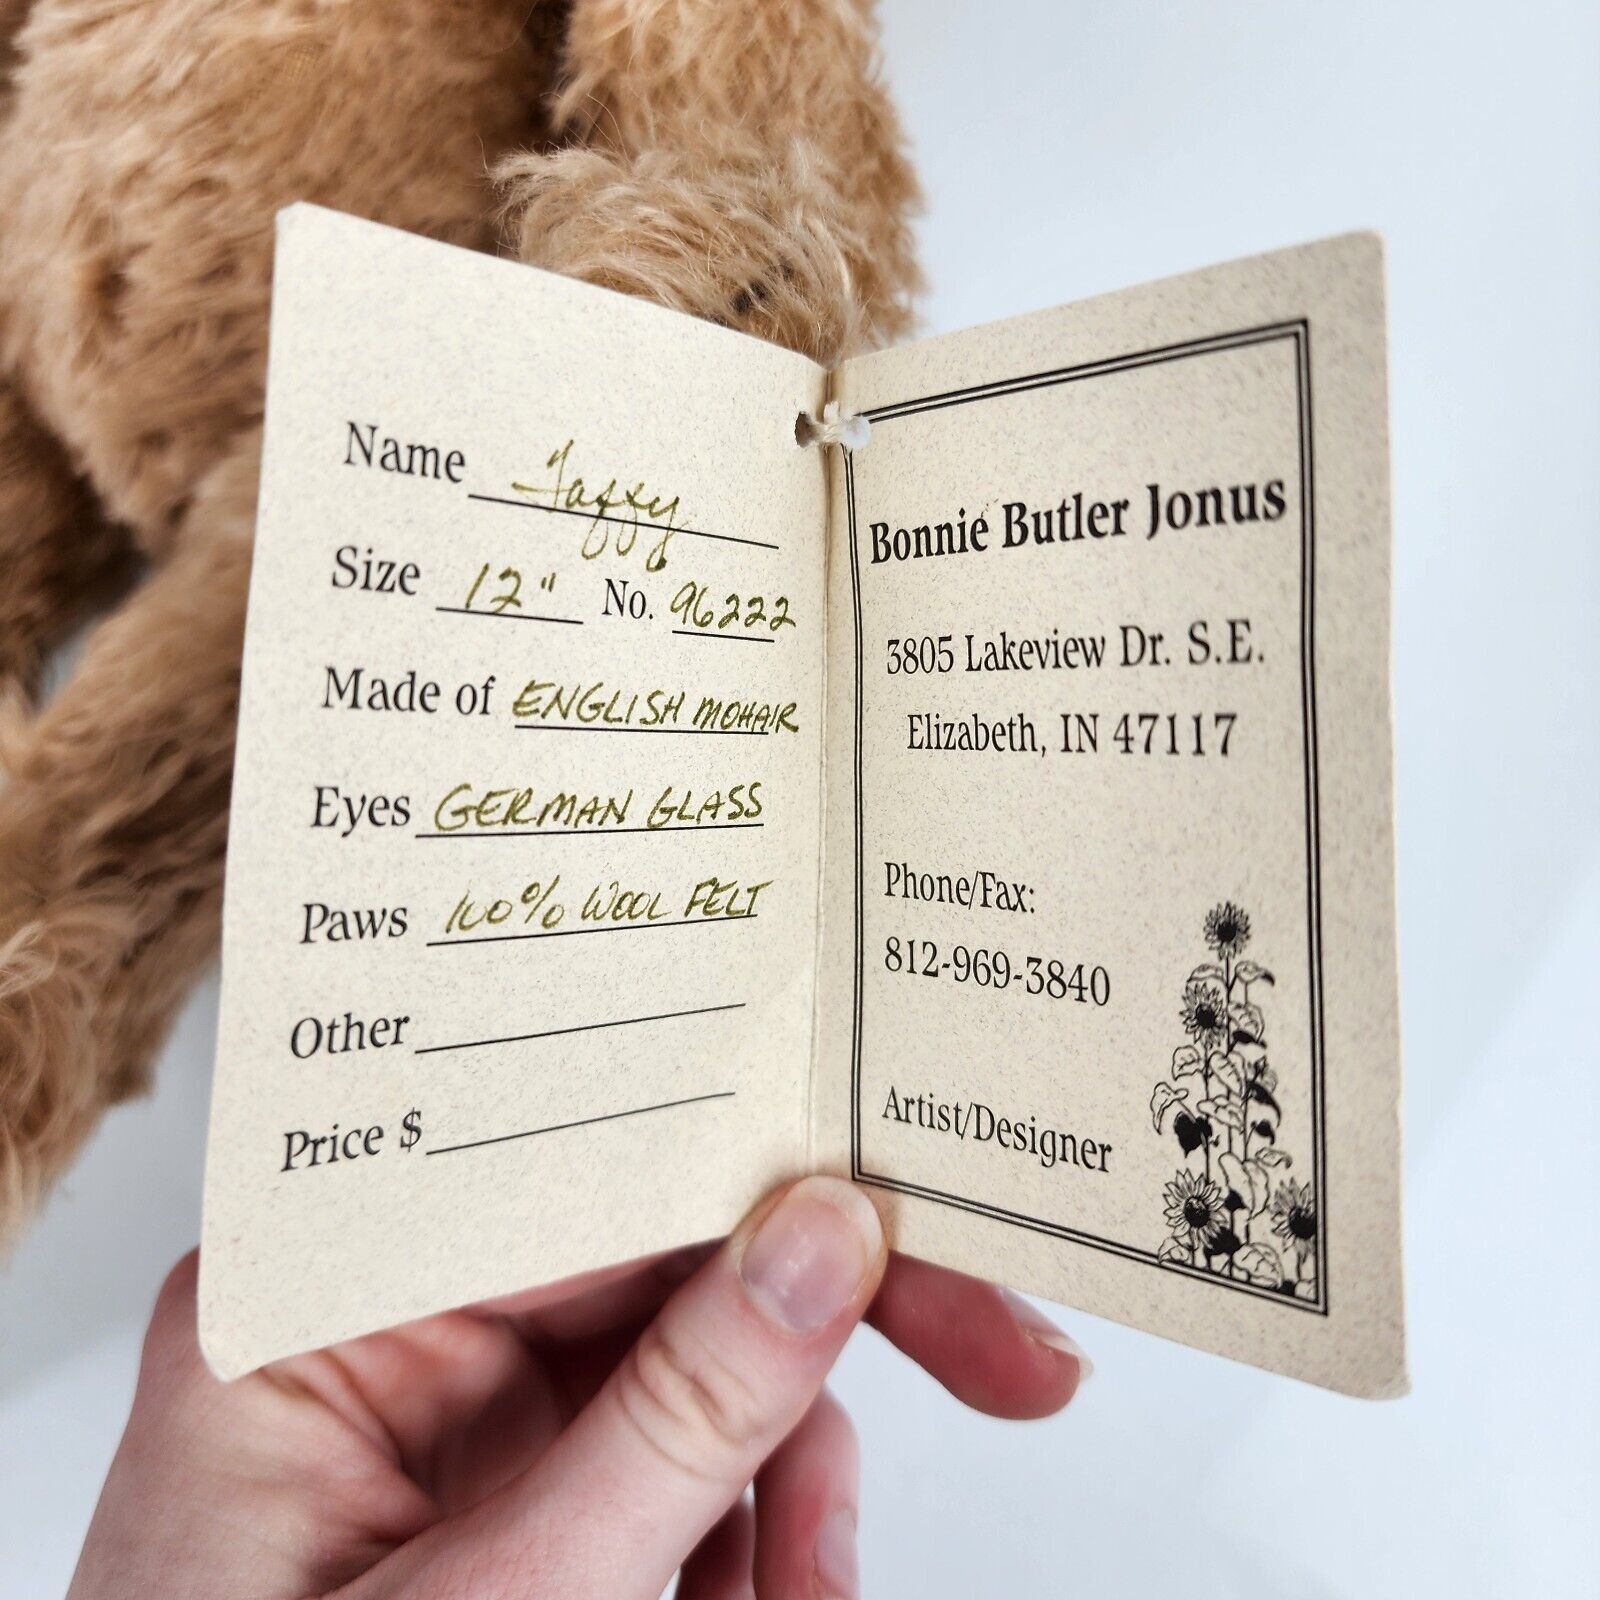 Name Taffy
Size 12" No. 96222
Made of ENGLISH MOHAIR
Eyes GERMAN GLASS
Paws 100% WOOL FELT
Other
Price $
Bonnie Butler Jonus
3805 Lakeview Dr. S.E.
Elizabeth, IN 47117
Phone/Fax:
812-969-3840
Artist/Designer